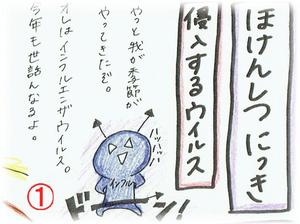 ほけんしつ にっき
侵入するウイルス
やっと我が季節が
やってきたぞ。
オレはインフルエンザウイルス。
今年も世話んなるよ。
ハッハッハッ
インフル
ドーン!
①